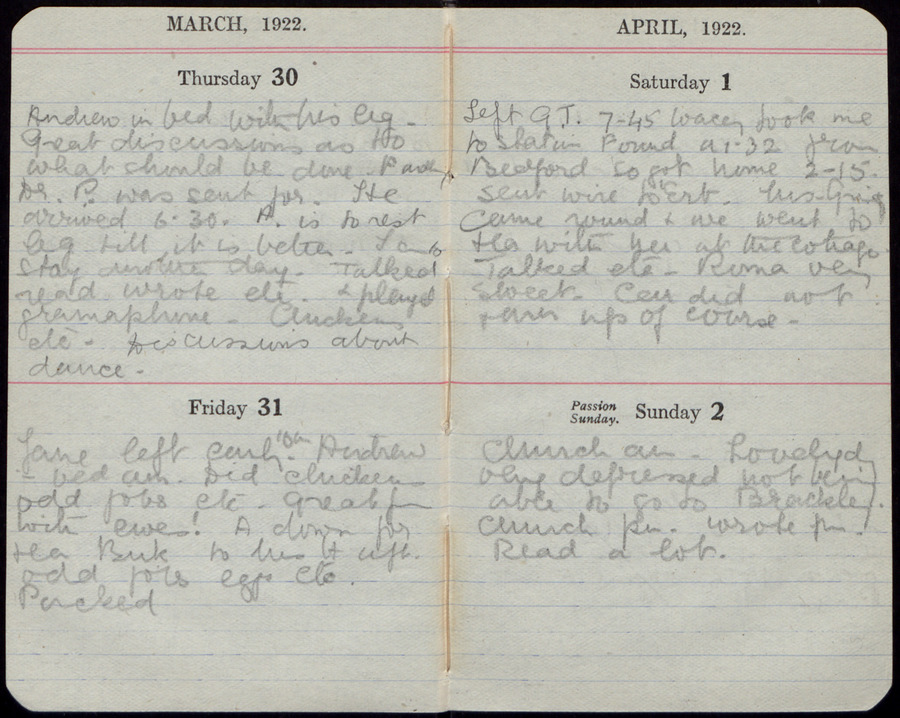 MARCH, 1922.
Thursday 30
Andrew in bed with his leg -
Great discussions as to
what should be done.
Dr. P. was sent for. He
arrived 6.30. A. is to rest
leg till it is better -
stay another day - Talked
read wrote etc. & played
gramaphone - Chickens
etc - Discussions about
dance -
Friday 31
Jane left early. Andrew
in bed am. Did chickens
odd jobs etc - Great fun
with ewes! A down for
tea Buk to his
odd jobs eggs etc.
Packed
APRIL, 1922.
Saturday 1
Left G.T. 7-45 took me
to station Found a 1-32 from
Bedford so got home 2-15.
Sent wire to
Came round & we went to
tea with her at the cottage.
Talked etc - Roma very
sweet - Cen did not
turn up of course -
Passion Sunday. Sunday 2
Church am - Lovely d
very depressed not being
able to go to Brackley.
Church pm. wrote pm.
Read a lot.